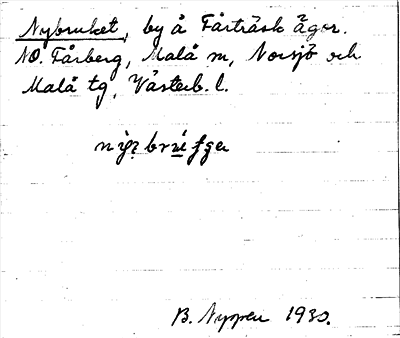 Nybruket, by å Fårträsk ägor.
NO. Fårberg, Malå sn, Norsjö och
Malå tg, Västerb. l.
B. Nyppen 1930.